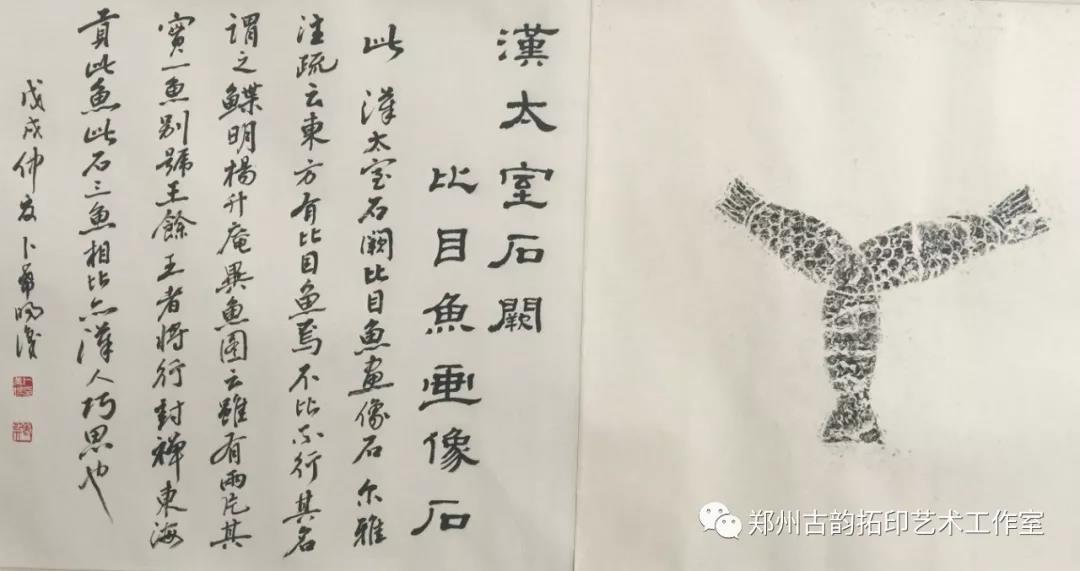 漢太室石闕
比目魚画像石
此漢太室石闕比目魚畫像石尔雅
注疏云東方有比目魚焉不比不行其名
謂之鰈明楊升庵異魚圖云雖有兩片其
實一魚别號王餘王者将行封禅東海
貢此魚此石三魚相比亦漢人巧思也
戊戌仲夏卜
郑州古韵拓印艺术工作室